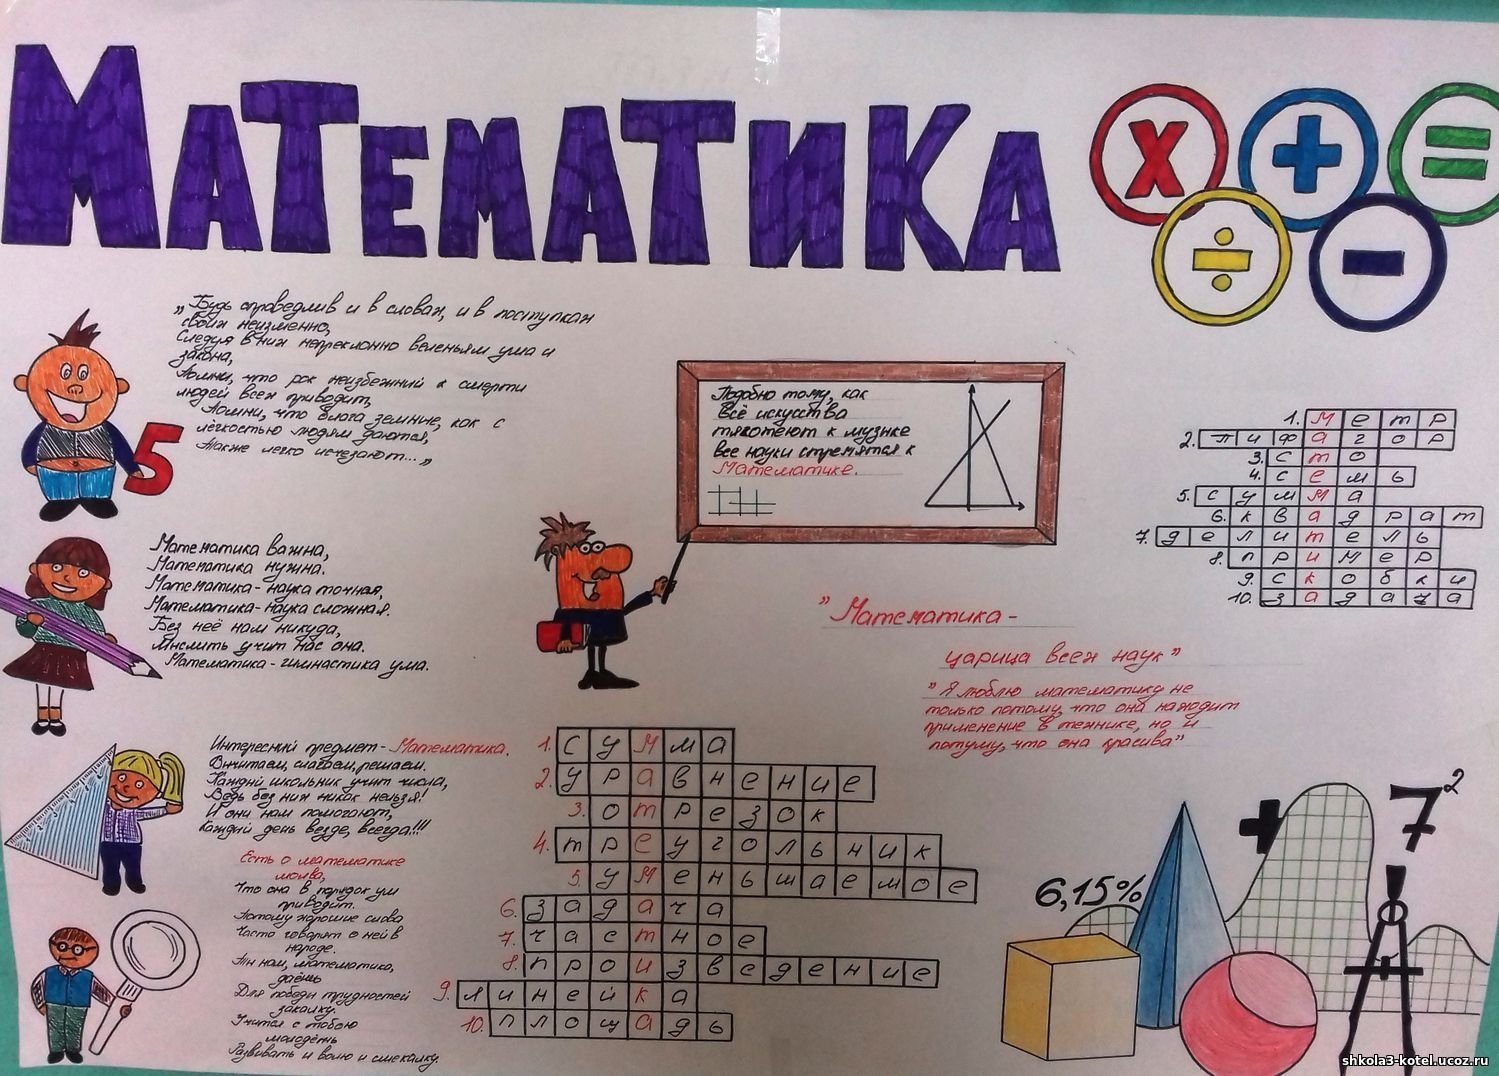 Математика
x + =
÷ −
„Будь справедлив и в словах, и в поступках
своих неизменно,
Следуя в них непреклонно веленьям ума и
закона,
Помни, что рок неизбежний к смерти
людей всех приводит,
Помни, что блага земние, как с
лёгкостью людям даются,
Также легко исчезают...„
5
Подобно тому, как
Всё искусства
тяготеют к музыке
все науки стремятся к
Математике.
1. метр
2. пифагор
3. сто
4. семь
5. сумма
6. квадрат
7. делитель
8. пример
9. скобки
10. задача
Математика важна,
Математика нужна.
Математика- наука точная,
Математика- наука сложная.
Без неё нам никуда,
Мыслить учит нас она.
Математика- гимнастика ума.
” Математика -
царица всех наук”
” Я люблю математику не
только потому, что она находит
применение в технике, но и
потуму, что она красива”
Интересний предмет- Математика.
Вичитаем, слагаем, решаем.
Каждий школьник учит числа,
Ведь без них никак нельзя!
И они нам помогают,
Каждий день везде, всегда!!!
Есть о математике
молва,
Что она в порядок ум
приводит.
Потому хорошие слова
Часто говорят о ней в
народе.
Ти нам, математика,
даёшь
Для победи трудностей
закалку.
Учится с тобою
молодёжь
Развивать и волю и смекалку.
1. сумма
2. уравнение
3. отрезок
4. треугольник
5. уменьшаемое
6. задача
7. частное
8. произведение
9. линейка
10. площадь
+ 7²
6,15%
shkola3-kotel.ucoz.ru